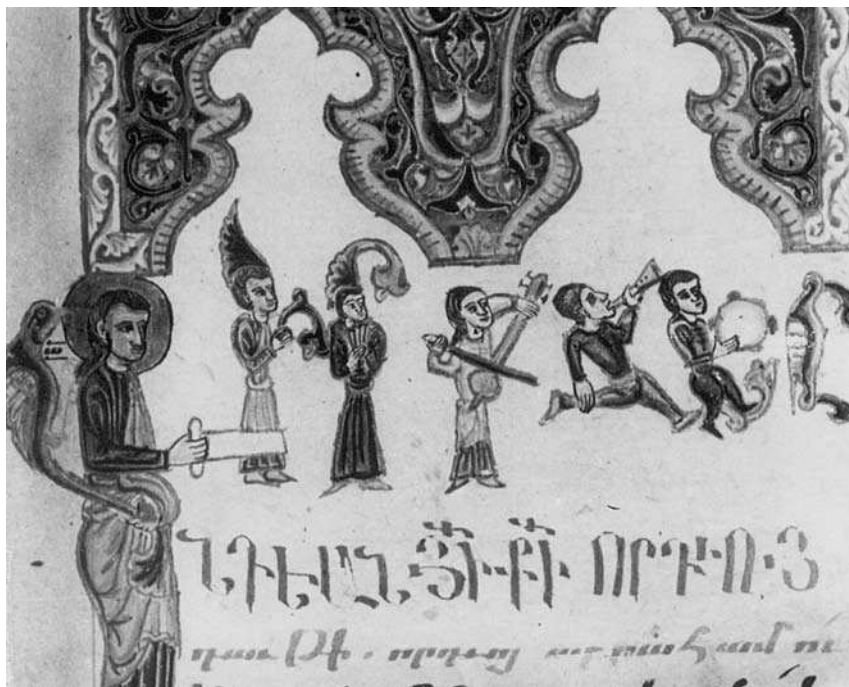 ՆԴԵԱՆ ՅԻ ՔԻ ՈՐԴՒՈՅ
դաւթի. որդւոյ աբրահամու